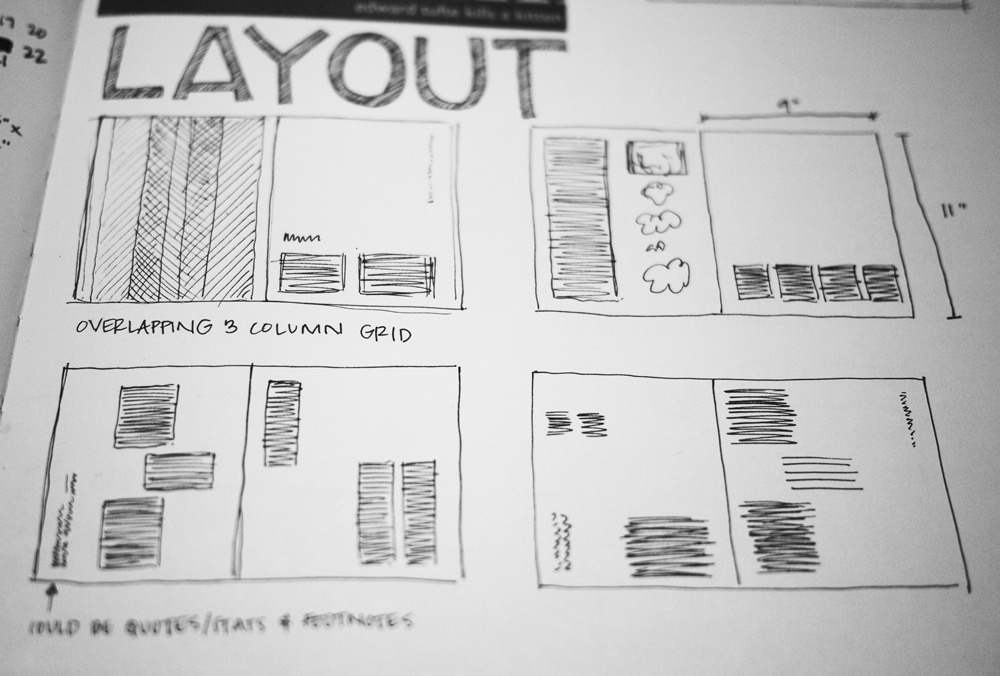 edward tufte kills a kitten
LAYOUT
17 20
22
9"
11"
OVERLAPPING 3 COLUMN GRID
COULD BE QUOTES/STATS & FOOTNOTES